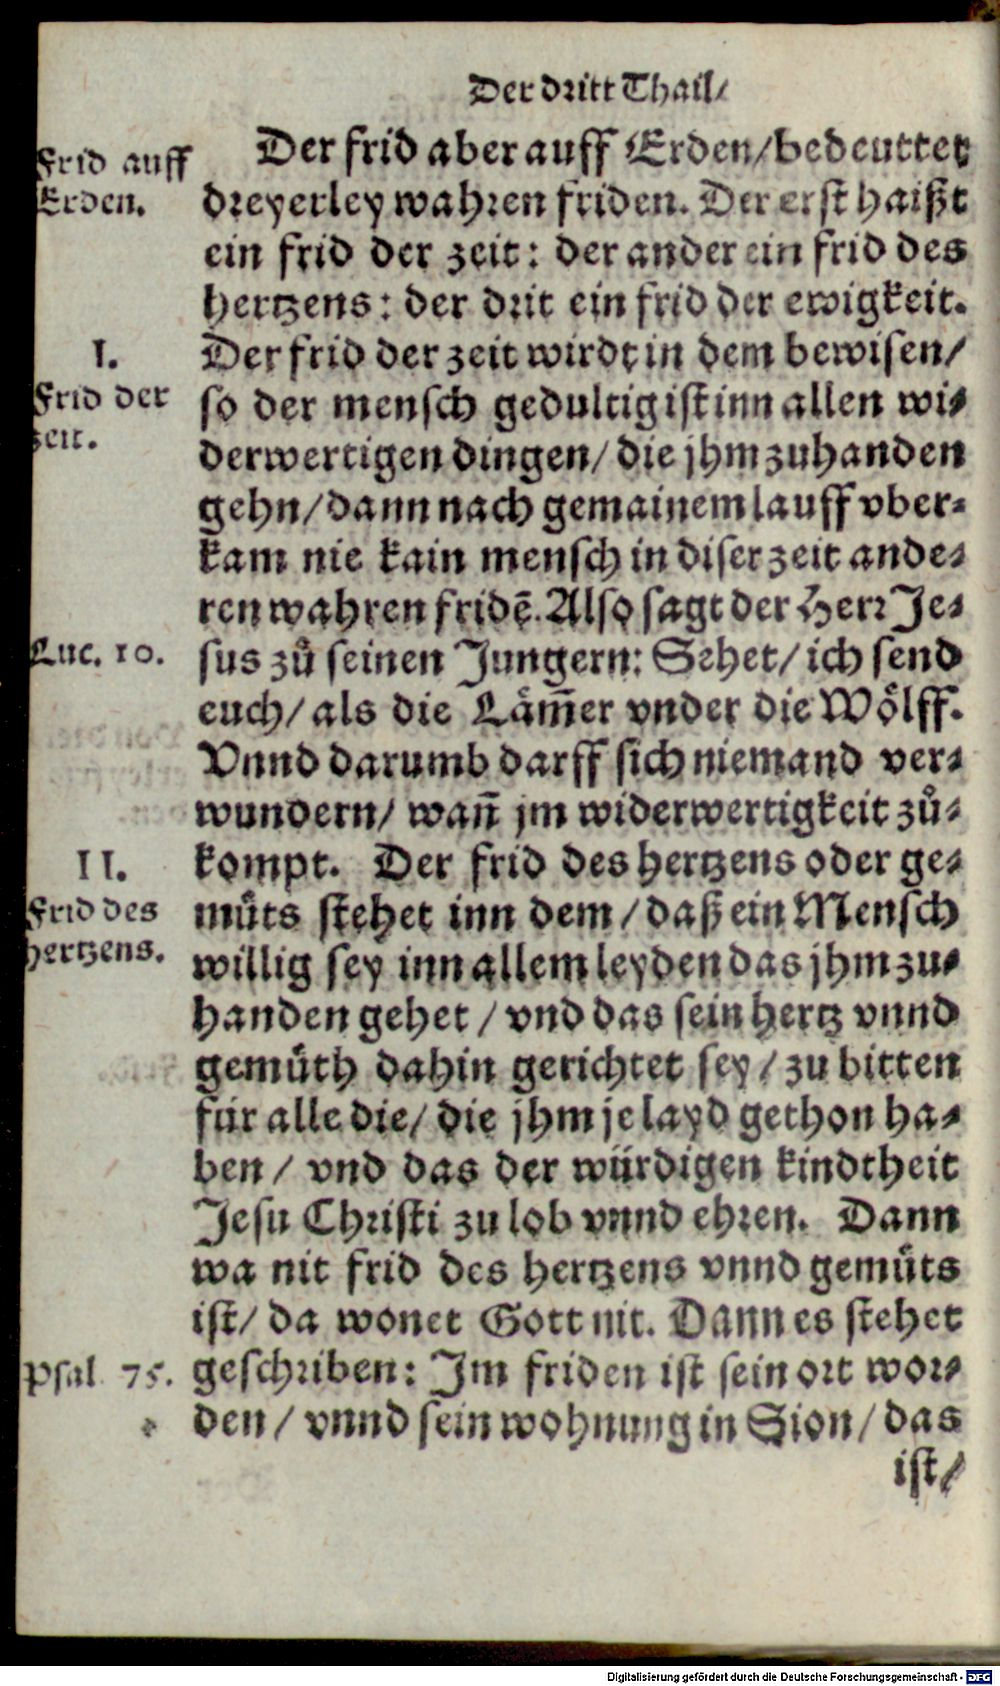 Der dritt Thail/
Frid auff
Erden.
Der frid aber auff Erden/bedeuttet
dreyerley wahren friden. Der erst haißt
ein frid der zeit: der ander ein frid des
hertzens: der drit ein frid der ewigkeit.
I.
Frid der
zeit.
Der frid der zeit wirdt in dem bewisen/
so der mensch gedultig ist inn allen wi-
derwertigen dingen/ die jhm zuhanden
gehn/dann nach gemainem lauff vber-
kam nie kain mensch in diser zeit ande-
ren wahren fridē. Also sagt der Herr Je-
Luc. 10.
sus zů seinen Jungern: Sehet/ ich send
euch/ als die Läm̄er vnder die Wölff.
Vnnd darumb darff sich niemand ver-
wundern/ wan̄ jm widerwertigkeit zů-
II.
Frid des
hertzens.
kompt. Der frid des hertzens oder ge-
můts stehet inn dem/ daß ein Mensch
willig sey inn allem leyden das jhm zu-
handen gehet/ vnd das sein hertz vnnd
gemůth dahin gerichtet sey/ zu bitten
für alle die/ die jhm je layd gethon ha-
ben/ vnd das der würdigen kindtheit
Jesu Christi zu lob vnnd ehren. Dann
wa nit frid des hertzens vnnd gemůts
ist/ da wonet Gott nit. Dann es stehet
Psal. 75.
geschriben: Im friden ist sein ort wor-
den/ vnnd sein wohnung in Sion/ das
ist/
Digitalisierung gefördert durch die Deutsche Forschungsgemeinschaft - DFG